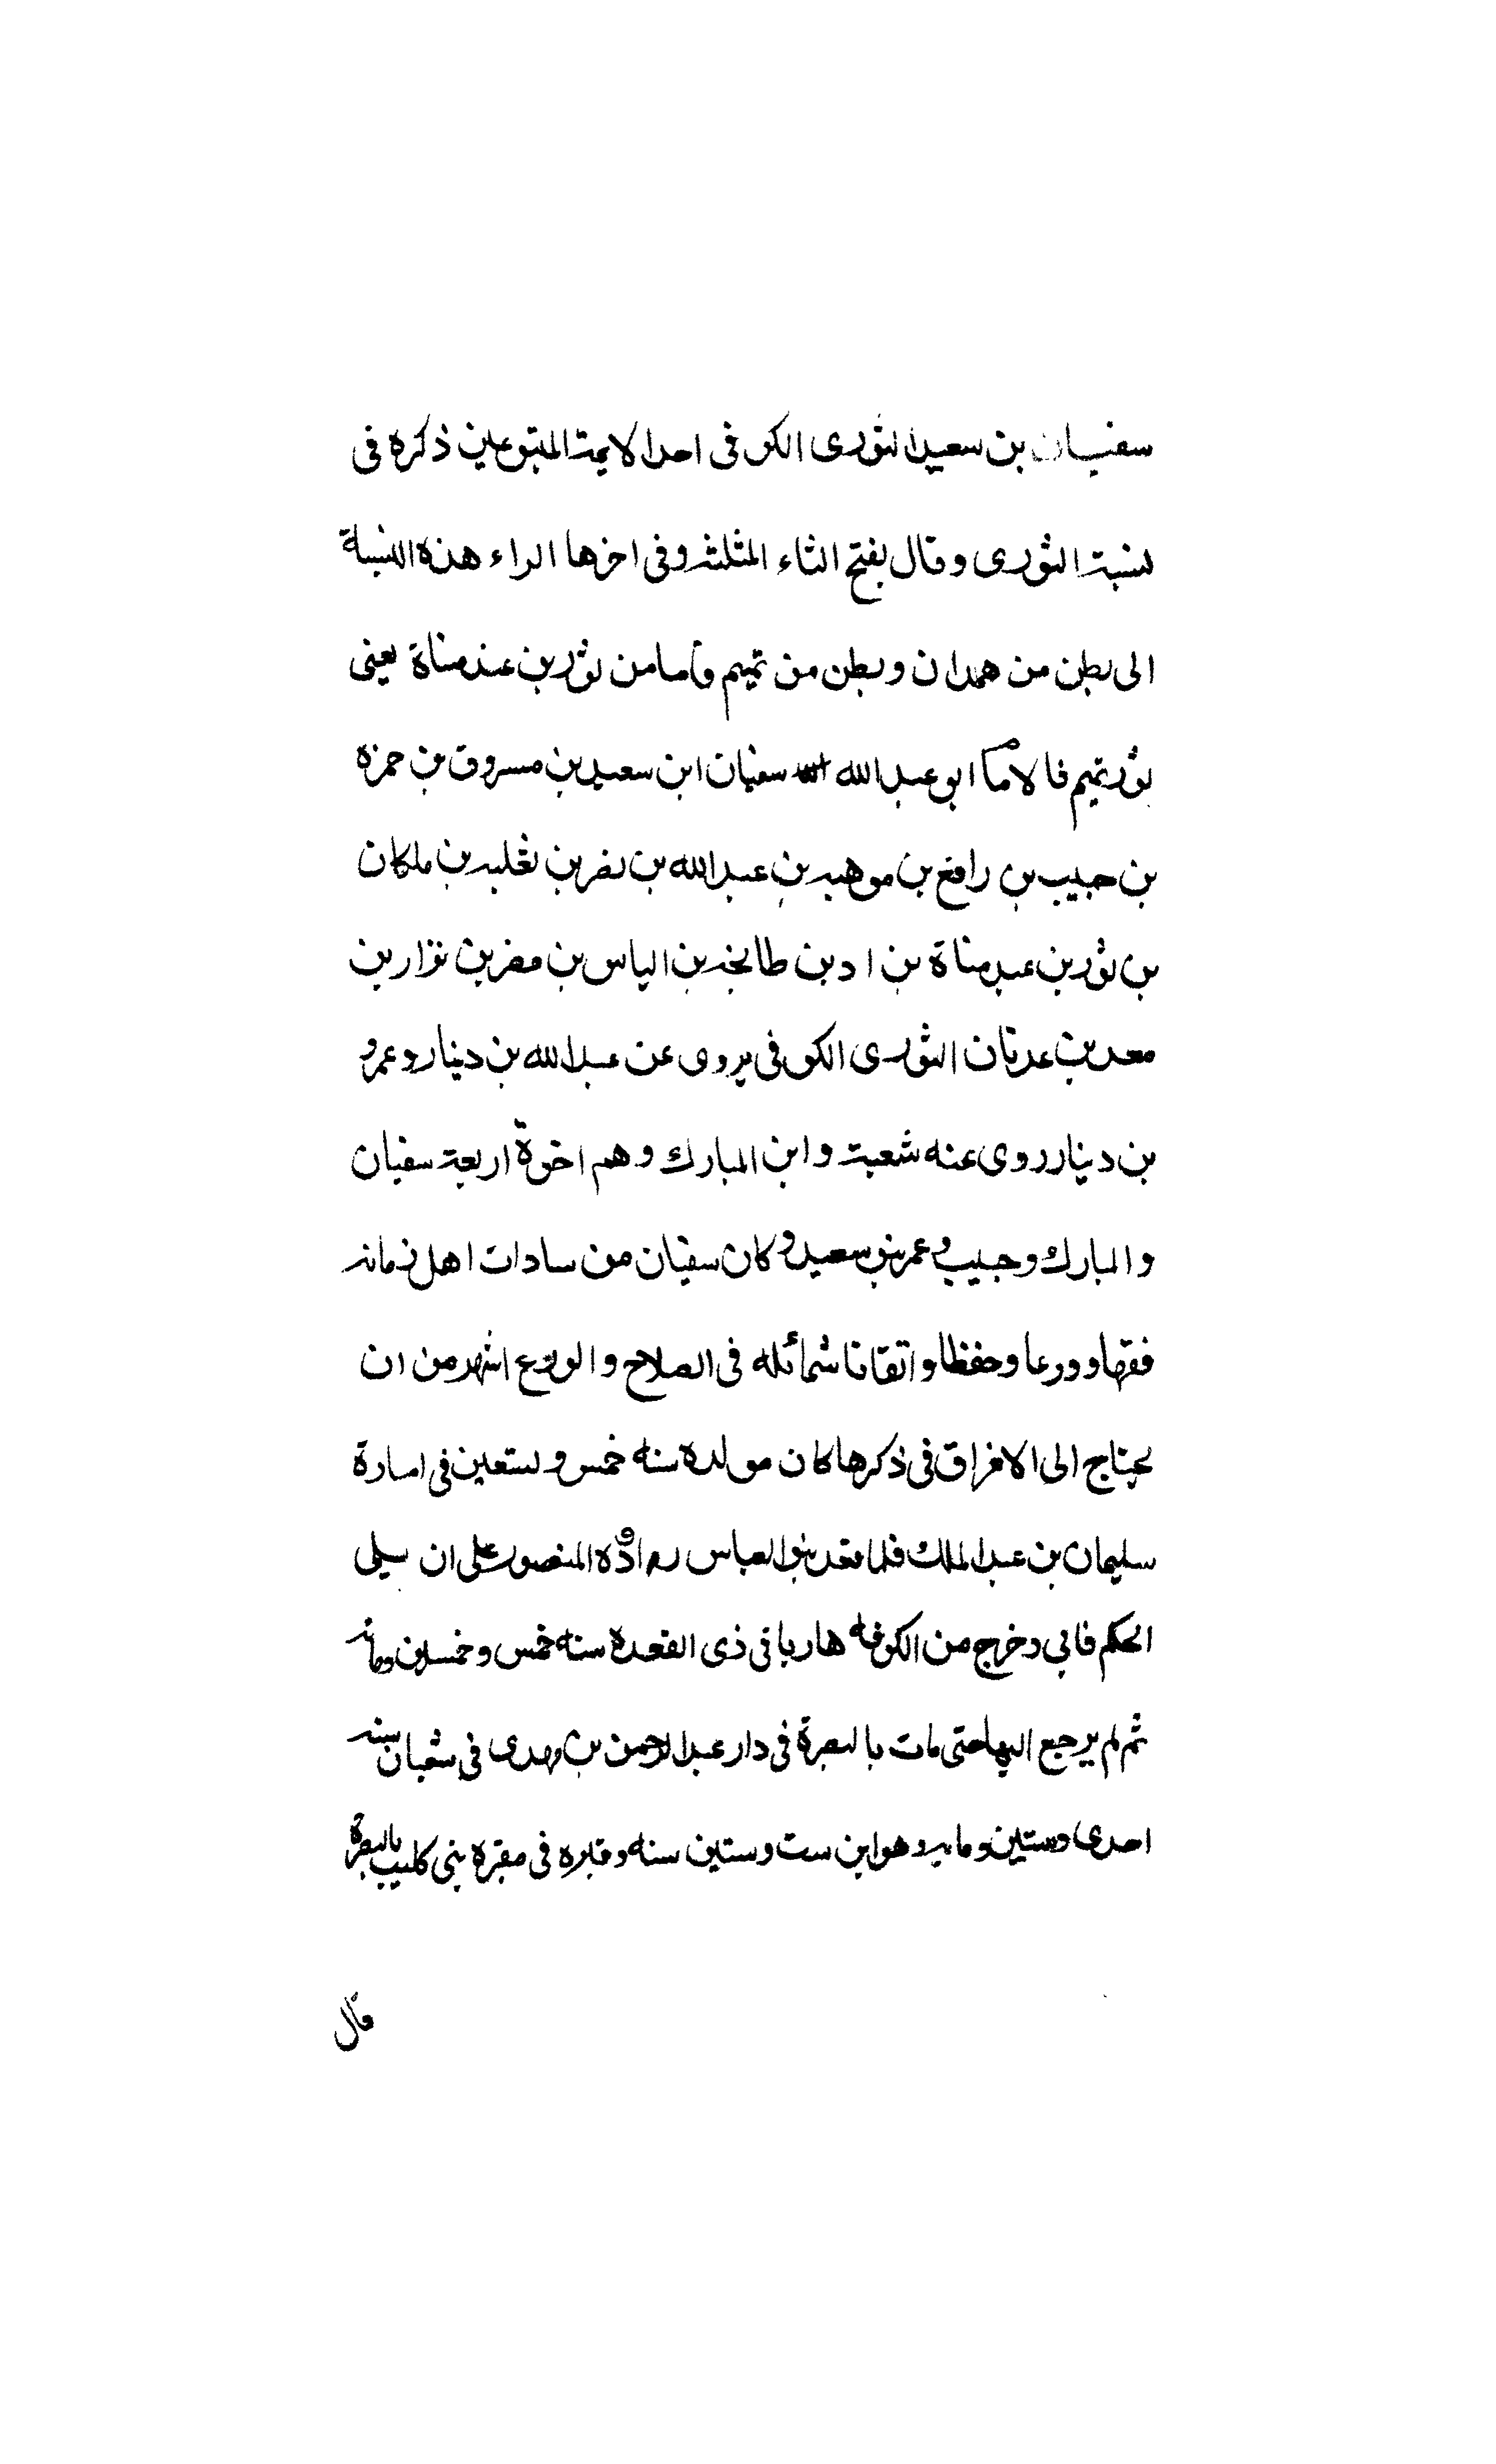 سفيان بن سعيد الثورى الكوفى احد الايمة المتبوعين ذكره فى
نسبة الثورى وقال بفتح الثاء المثلثه وفى اخرها الراء هذه النسبة
الى بطن من همدان وبطن من تميم واما من ثور بن عبد مناة يعنى
ثور تميم فالامام ابو عبد الله سفيان ابن سعيد بن مسروق بن حمزه
بن حبيب بن رافع بن موهبه بن عبد الله بن نضر بن ثعلبه بن ملكان
بن ثور بن عبد مناة بن اد بن طابخه بن الياس بن مضر بن نزار بن
معد بن عدنان الثورى الكوفى يروى عن عبد الله بن دينار وعمرو
بن دينار روى عنه شعبة وابن المبارك وهم اخوة اربعة سفيان
والمبارك وحبيب وعمر بنو سعيد وكان سفيان من سادات اهل زمانه
فقها وورعا وحفظا واتقانا شمائله فى الصلاح والورع اشهر من ان
يحتاج الى الاغراق فى ذكرها كان مولده سنه خمس وتسعين فى امارة
سليمان بن عبد الملك فلما قعد بنو العباس راوده المنصور على ان يلى
الحكم فابى وخرج من الكوفه هاربا فى ذى القعده سنه خمس وخمسين ومائه
ثم لم يرجع اليها حتى مات بالبصرة فى دار عبد الرحمن بن مهدى فى شعبان سنه
احدى وستين ومايه وهو ابن ست وستين سنه وقبره فى مقبره بنى كليب بالبصرة
قال